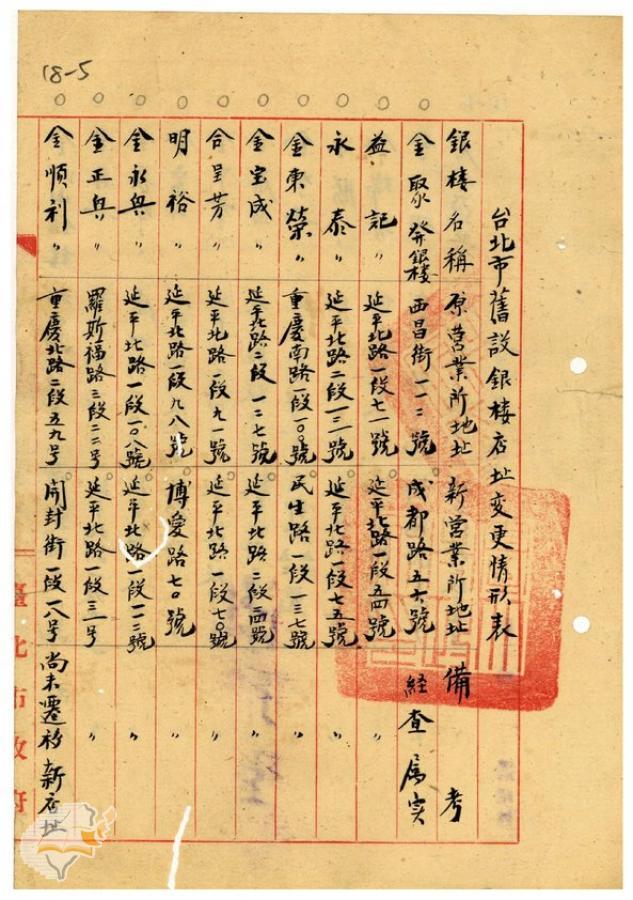 18-5
台北市舊設銀楼店址变更情形表
銀楼名稱 原营業所地址 新营業所地址 備考
金聚發銀楼 西昌街一一二號 成都路五六號 経查属实
益記〃 延平北路一段七一號 延平北路一段五四號 〃
永泰〃 延平北路二段一三一號 延平北路一段七五號 〃
金東榮〃 重慶南路一段一〇號 民生路一段一三七號 〃
金宝成〃 延平北路二段一二七號 延平北路二段二四號 〃
合呈芳〃 延平北路一段九一號 延平北路一段七〇號 〃
明裕〃 延平北路一段九八號 博愛路七〇號 〃
金永興〃 延平北路一段一〇八號 延平北路一段一一三號 〃
金正興〃 羅斯福路三段二二号 延平北路一段三一号 〃
金順利〃 重慶北路二段五九号 開封街一段一八号 尚未遷移新店址
臺北市政府